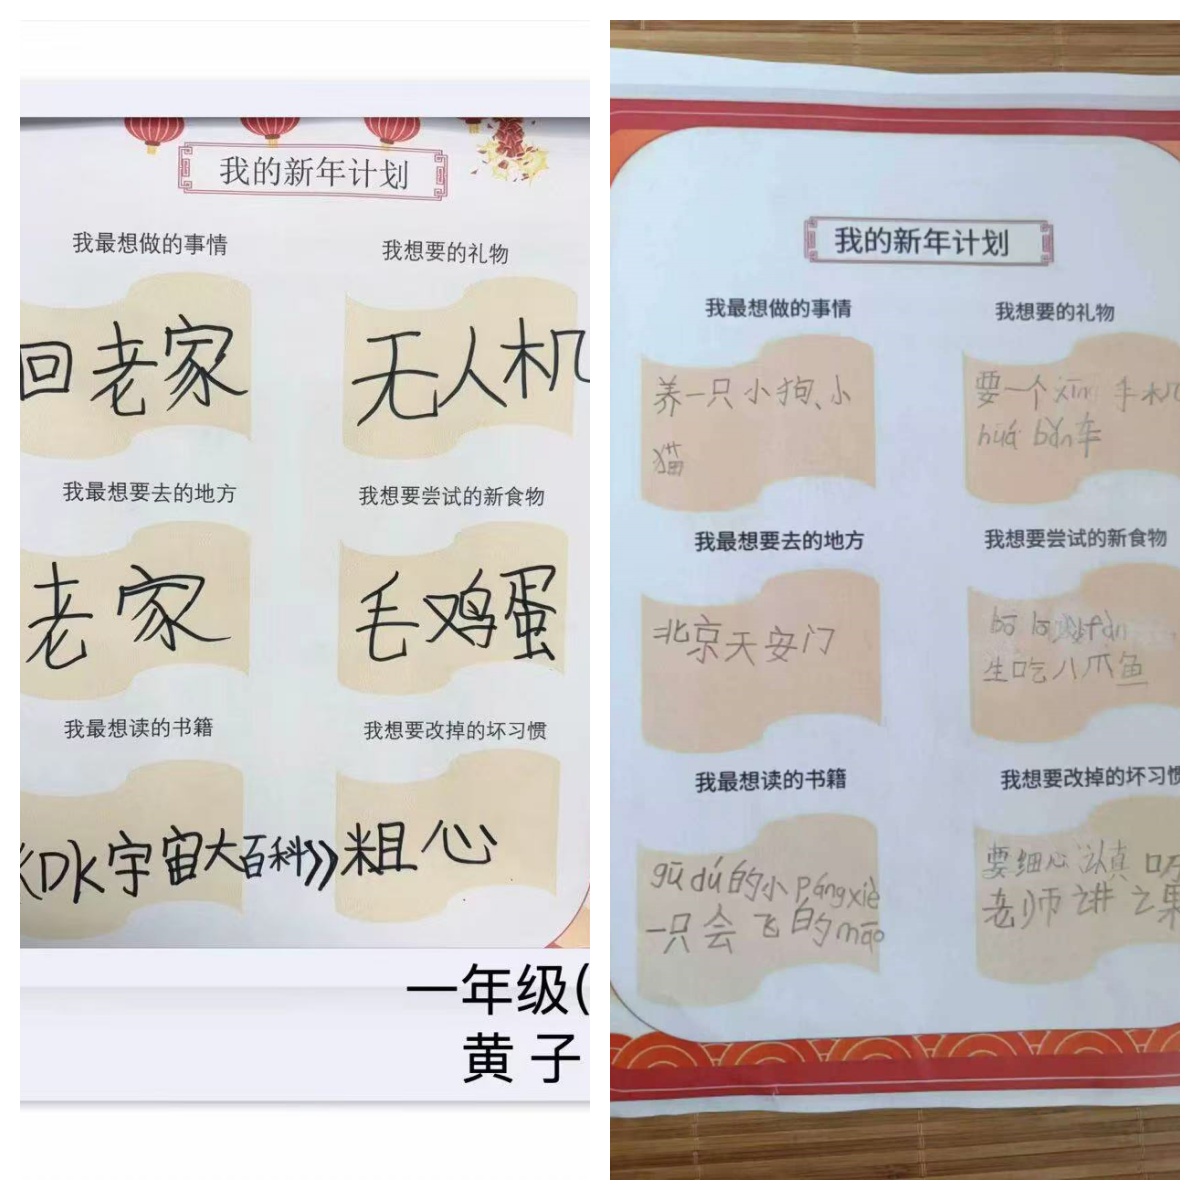 我的新年计划
我最想做的事情
我想要的礼物
回老家
无人机
我最想要去的地方
我想要尝试的新食物
老家
毛鸡蛋
我最想读的书籍
我想要改掉的坏习惯
《DK宇宙大百科》
粗心
一年级(
黄子
我的新年计划
我最想做的事情
我想要的礼物
养一只小狗、小
猫
要一个xīn手机
huá bǎn车
我最想要去的地方
我想要尝试的新食物
北京天安门
bō luó fàn
生吃八爪鱼
我最想读的书籍
我想要改掉的坏习惯
gū dú的小páng xiè
一只会飞的māo
要细心认真听
老师讲课